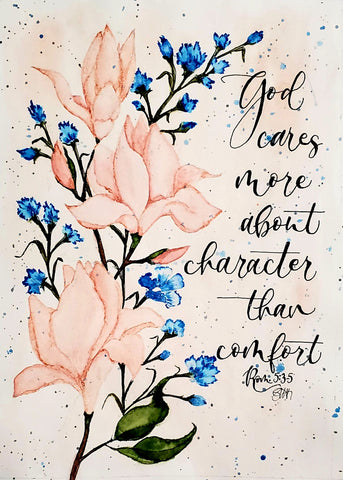 God
cares
more
about
character
than
comfort
Rom: 5:3-5